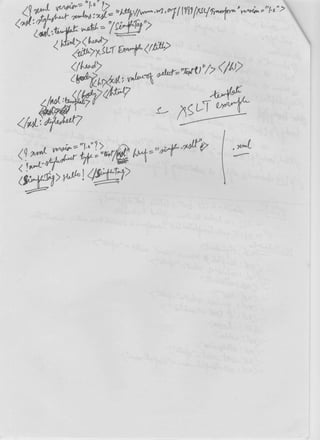 <? xml version = "1.0" ?>
<xsl: stylesheet xmlns:xsl = "http://www.w3.org/1999/XSL/Transform" version = "1.0">
<xsl: template match = "/SimpleTag">
<html><head>
<title>XSLT Example </title>
</head>
<body><h1><xsl: value-of select = "text()"/></h1>
</body></html>
</xsl: template>
</xsl: stylesheet>
template
XSLT example
<? xml version = "1.0"?>
<? xml-stylesheet type = "text/xsl" href = "simple.xslt">
.xml
<SimpleTag> Hello! </SimpleTag>